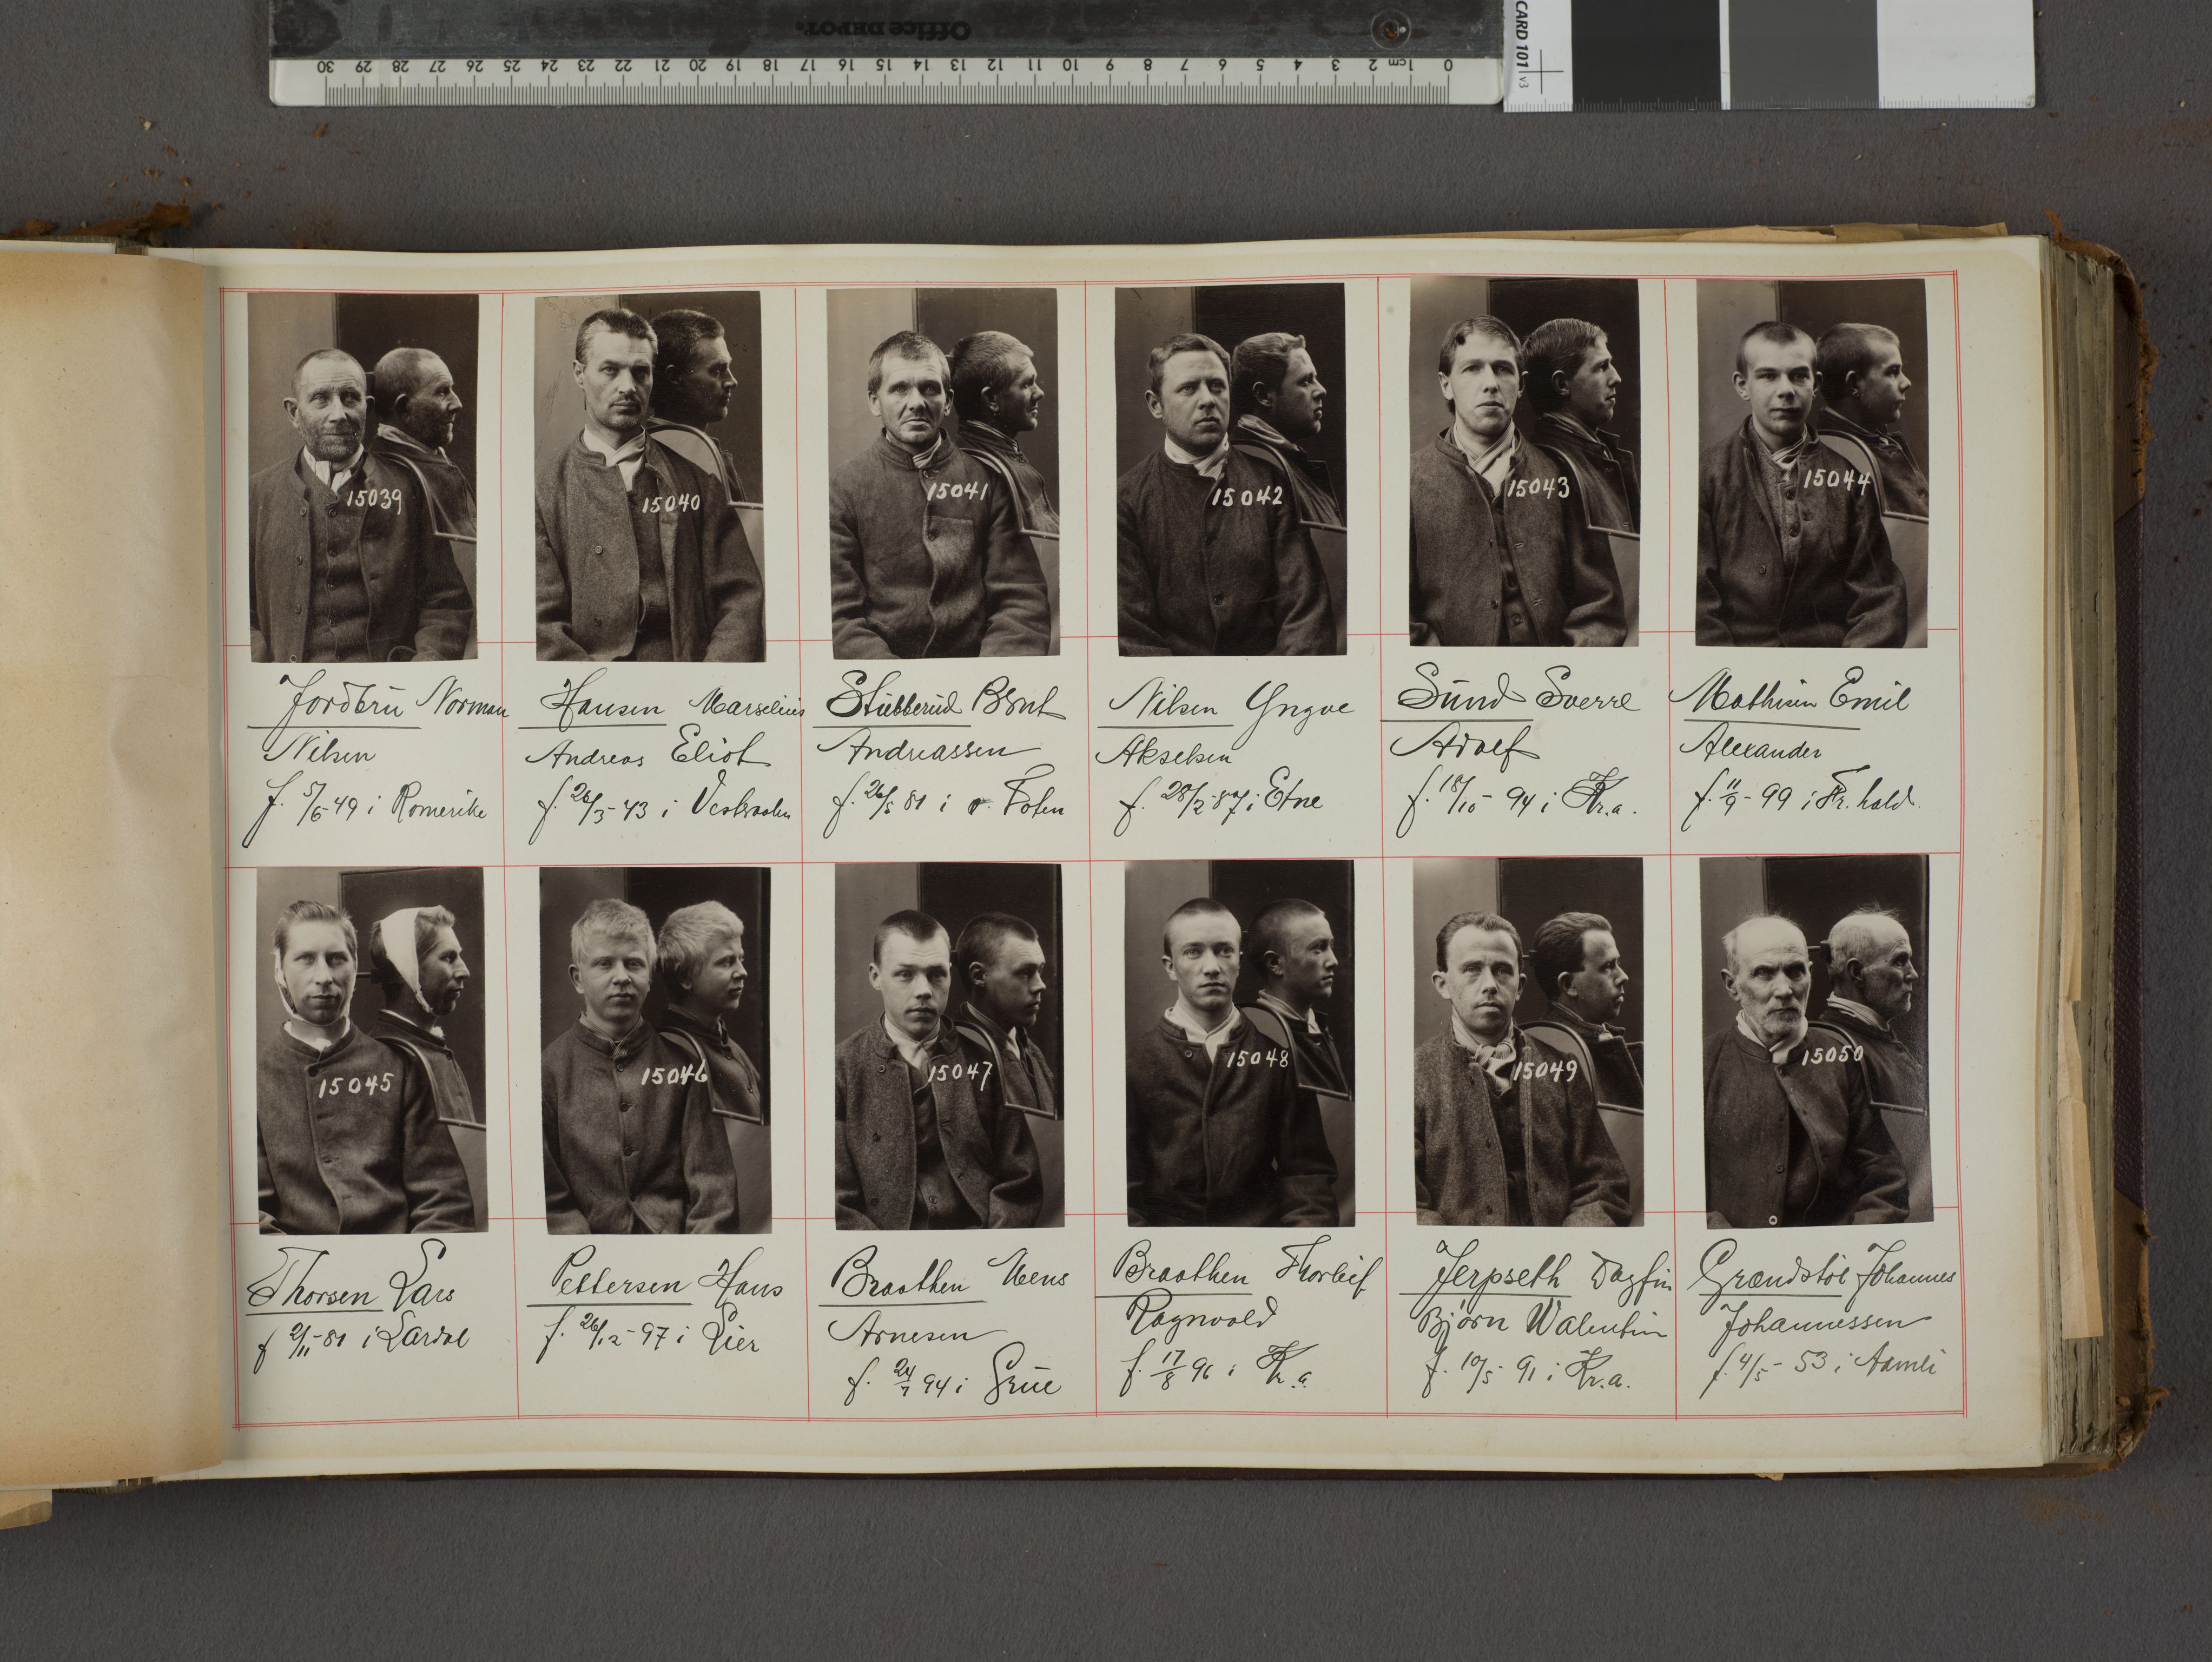 Office DEPOT.
30 29 28 27 26 25 24 23 22 21 20 19 18 17 16 15 14 13 12 11 10 9 8 7 6 5 4 3 2 1cm 0
CARD 101 v3
15039
15040
15041
15042
15043
15044
Jordbru Norman
Nilsen
f. 5/6-49 i Romerike
Hansen Marselius
Andreas Eliot
f. 26/3-43 i
Stubberud Bernt
Andreassen
f. 26/5 81 i Ø. Toten
Nilsen Yngve
Akselsen
f. 28/2-87 i Etne
Sund Sverre
Adolf
f. 18/10-94 i Kr.a.
Mathisen Emil
Alexander
f. 11/9-99 i Fr.hald.
15045
15046
15047
15048
15049
15050
Thorsen Lars
f 2/11-81 i Lardal
Pettersen Hans
f. 26/12-97 i Lier
Braathen Mens
Arnesen
f. 24/7 94 i Grue
Braathen Thorleif
Ragnvald
f. 17/8 96 i Kr.a.
Jerpseth Dagfin
Bjørn Walentin
f. 10/5-91 i Kr.a.
Grændstøl Johannes
Johannessen
f. 4/5-53 i Aamli